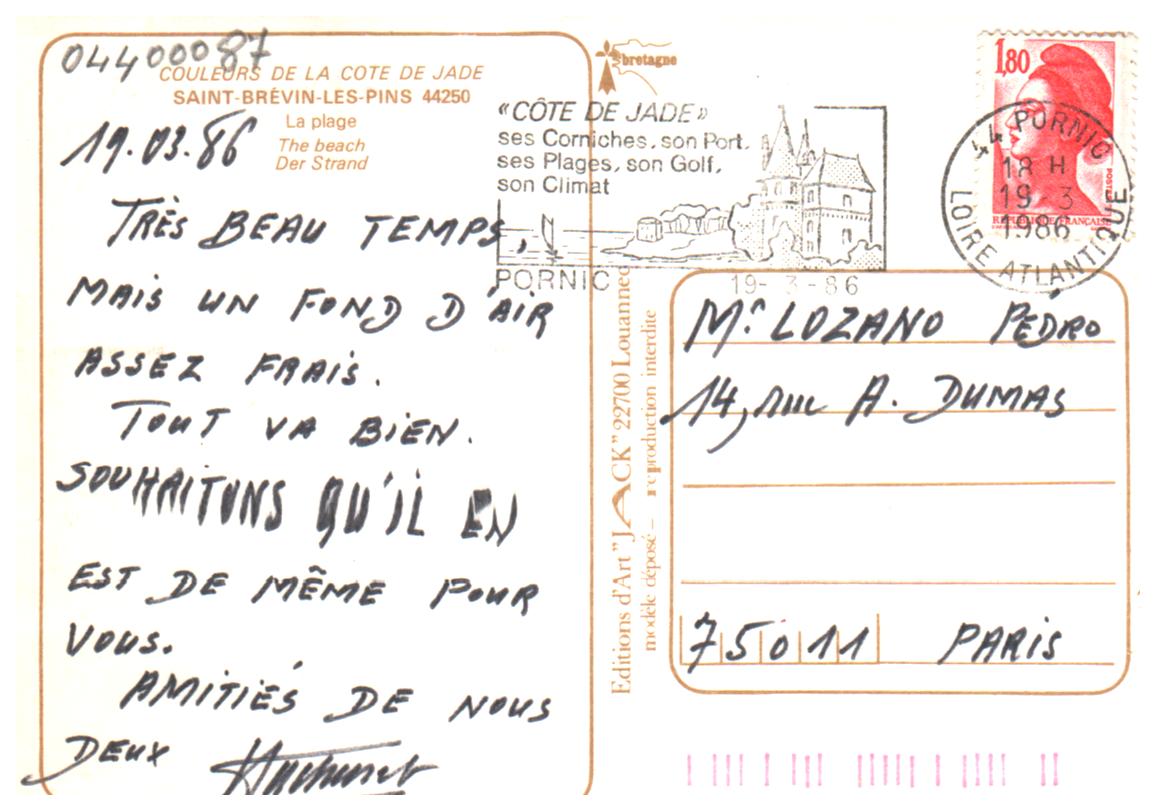 04400087
COULEURS DE LA COTE DE JADE
SAINT-BRÉVIN-LES-PINS 44250
La plage
The beach
Der Strand
19.03.86
TRÈS BEAU TEMPS,
MAIS UN FOND D'AIR
ASSEZ FRAIS.
TOUT VA BIEN.
SOUHAITONS QU'IL EN
EST DE MÊME POUR
VOUS.
AMITIÉS DE NOUS
DEUX
bretagne
«CÔTE DE JADE»
ses Corniches, son Port,
ses Plages, son Golf,
son Climat
PORNIC
19-3-86
1,80
POSTES
REPUBLIQUE FRANÇAISE
44 PORNIC
18 H
19-3
1986
LOIRE ATLANTIQUE
Editions d'Art "JACK" 22700 Louannec
modèle déposé – reproduction interdite
Mr LOZANO PÉDRO
14, rue A. DUMAS
75011 PARIS